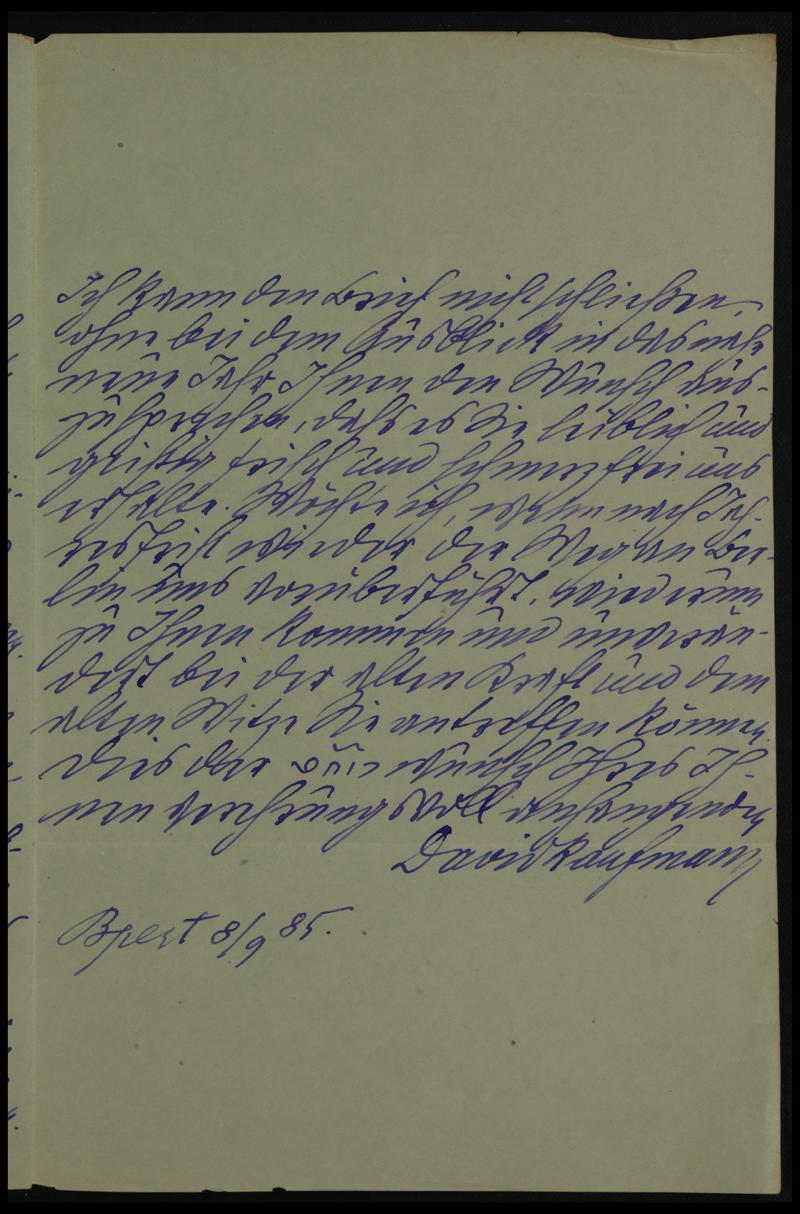 Ich kann den Brief nicht schließen,
ohne bei dem Ausblick in das nahe
neue Jahr Ihnen den Wunsch aus-
zusprechen, daß es Sie leiblich und
geistig frisch und schmerzfrei uns
erhalte. Möchte ich, wenn nach Jah-
resfrist wieder der Weg an Ber-
lin uns vorüberführt, wiederum
zu Ihnen kommen und unverän-
dert bei der alten Kraft und dem
alten Witze Sie antreffen können.
Dies der Wunsch Ihres Ih-
nen verehrungsvoll anhangenden
David Kaufmann
Bpest 8/9 85.